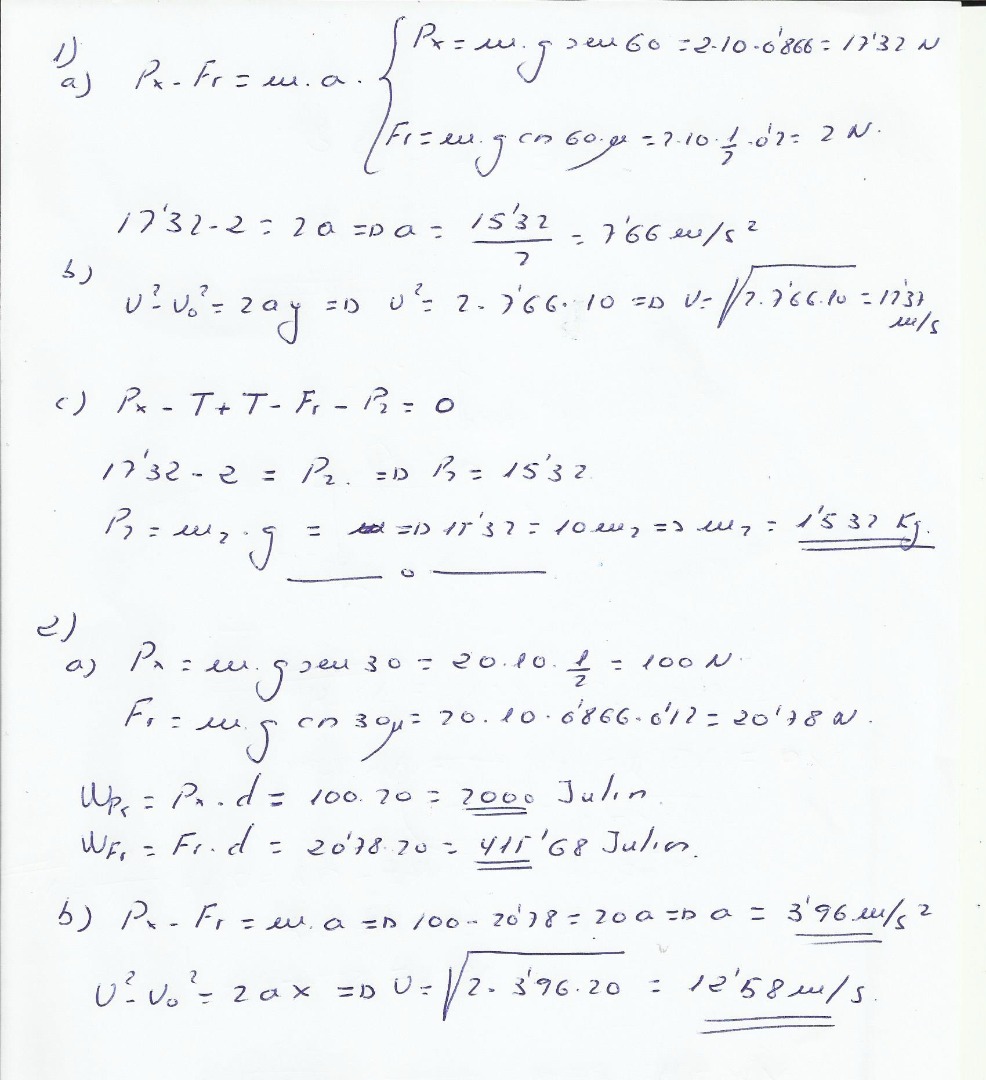 1)
a) Px - Fr = m . a . { Px = m . g sen 60 = 2·10·0'866 = 17'32 N
Fr = m . g cos 60 . μ = 2·10·1/2·0'2 = 2 N.
17'32 - 2 = 2a => a = 15'32/2 = 7'66 m/s²
b)
v² - v₀² = 2ay => v² = 2·7'66·10 => v = √2·7'66·10 = 12'37 m/s
c) Px - T + T - Fr - P₂ = 0
17'32 - 2 = P₂. => P₂ = 15'32
P₂ = m₂ . g = => 15'32 = 10m₂ => m₂ = 1'532 Kg.
2)
a) Px = m . g sen 30 = 20·10·1/2 = 100 N.
Fr = m . g cos 30 μ = 20·10·0'866·0'12 = 20'78 N.
WPx = Px . d = 100·20 = 2000 Julios.
WFr = Fr . d = 20'78·20 = 415'68 Julios.
b) Px - Fr = m . a => 100 - 20'78 = 20a => a = 3'96 m/s²
v² - v₀² = 2ax => v = √2·3'96·20 = 12'58 m/s.